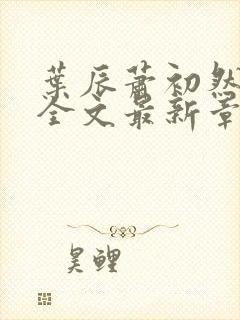 葉辰蕭初然
全文最新章
昊鲤